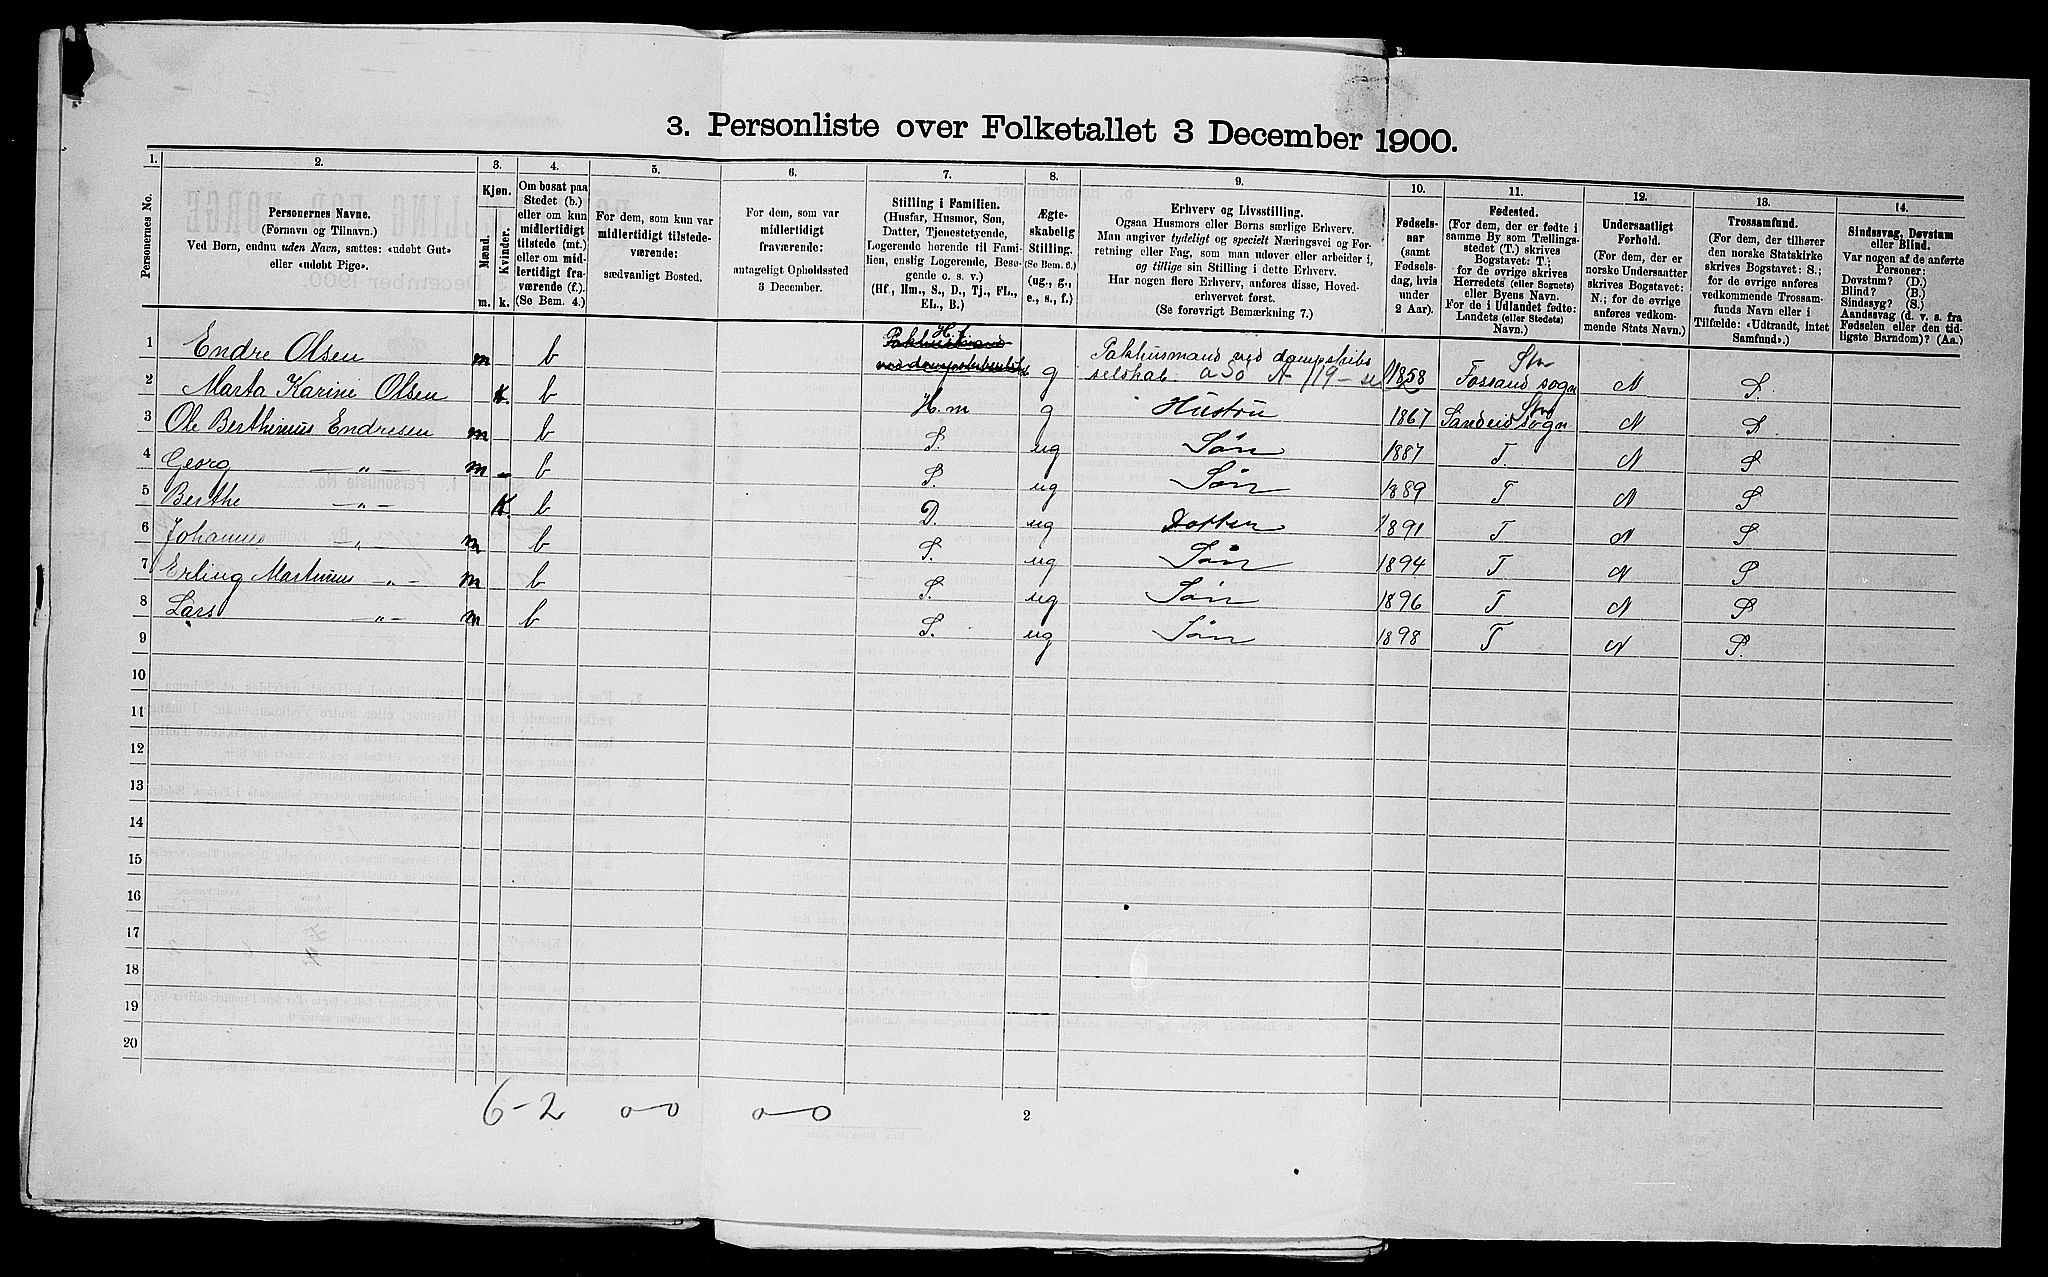 3. Personliste over Folketallet 3 December 1900.
1. 2. 3. 4. 5. 6. 7. 8. 9. 10. 11. 12. 13. 14.
Personernes No.
Personernes Navne.
(Fornavn og Tilnavn.)
Ved Børn, endnu uden Navn, sættes: «udøbt Gut»
eller «udøbt Pige».
Kjøn.
Mænd.
Kvinder.
m. k.
Om bosat paa
Stedet (b.)
eller om kun
midlertidigt
tilstede (mt.)
eller om mid-
lertidigt fra-
værende (f.).
(Se Bem. 4.)
For dem, som kun var
midlertidigt tilstede-
værende:
sædvanligt Bosted.
For dem, som var
midlertidigt
fraværende:
antageligt Opholdssted
3 December.
Stilling i Familien.
(Husfar, Husmor, Søn,
Datter, Tjenestetyende,
Logerende hørende til Fami-
lien, enslig Logerende, Besø-
gende o. s. v.)
(Hf., Hm., S., D., Tj., FL.,
EL., B.)
Ægte-
skabelig
Stilling.
(Se Bem. 6.)
(ug., g.,
e., s., f.)
Erhverv og Livsstilling.
Ogsaa Husmors eller Børns særlige Erhverv.
Man angiver tydeligt og specielt Næringsvei og For-
retning eller Fag, som man udøver eller arbeider i,
og tillige sin Stilling i dette Erhverv.
Har nogen flere Erhverv, anføres disse, Hoved-
erhvervet først.
(Se forøvrigt Bemærkning 7.)
Fødsels-
aar
(samt
Fødsels-
dag, hvis
under
2 Aar).
Fødested.
(For dem, der er fødte i
samme By som Tællings-
stedet (T.) skrives
Bogstavet: T.;
for de øvrige skrives
Herredets (eller Sognets)
eller Byens Navn.
For de i Udlandet fødte:
Landets (eller Stedets)
Navn.)
Undersaatligt
Forhold.
(For dem, der er
norske Undersaatter
skrives Bogstavet:
N.; for de øvrige
anføres vedkom-
mende Stats Navn.)
Trossamfund.
(For dem, der tilhører
den norske Statskirke
skrives Bogstavet: S.;
for de øvrige anføres
vedkommende Trossam-
funds Navn eller i
Tilfælde: «Udtraadt, intet
Samfund».)
Sindssvag, Døvstum
eller Blind.
Var nogen af de anførte
Personer:
Døvstum? (D.)
Blind? (B.)
Sindssyg? (S.)
Aandssvag (d. v. s. fra
Fødselen eller den tid-
ligste Barndom)? (Aa.)
1 Endre Olsen m b H.f. g Pakhusmand ved dampskibs 1858 Stv N S.
selskab. Fossand sogn
2 Marta Karine Olsen K. b H.m g Hustru 1867 Sandeid sogn Stv N S.
3 Ole Berthinius Endresen m b S. ug Søn 1887 T. N S
4 Georg —„— m b S. ug Søn 1889 T N S
5 Berthe —„— K. b D. ug Datter 1891 T N S
6 Johannes —„— m b S. ug Søn 1894 T N S
7 Erling Martinius —„— m b S. ug Søn 1896 T N S
8 Lars —„— m b S. ug Søn 1898 T N S.
9
10
11
12
13
14
15
16
17
18
19
20
6-2 0-0 0-0
2